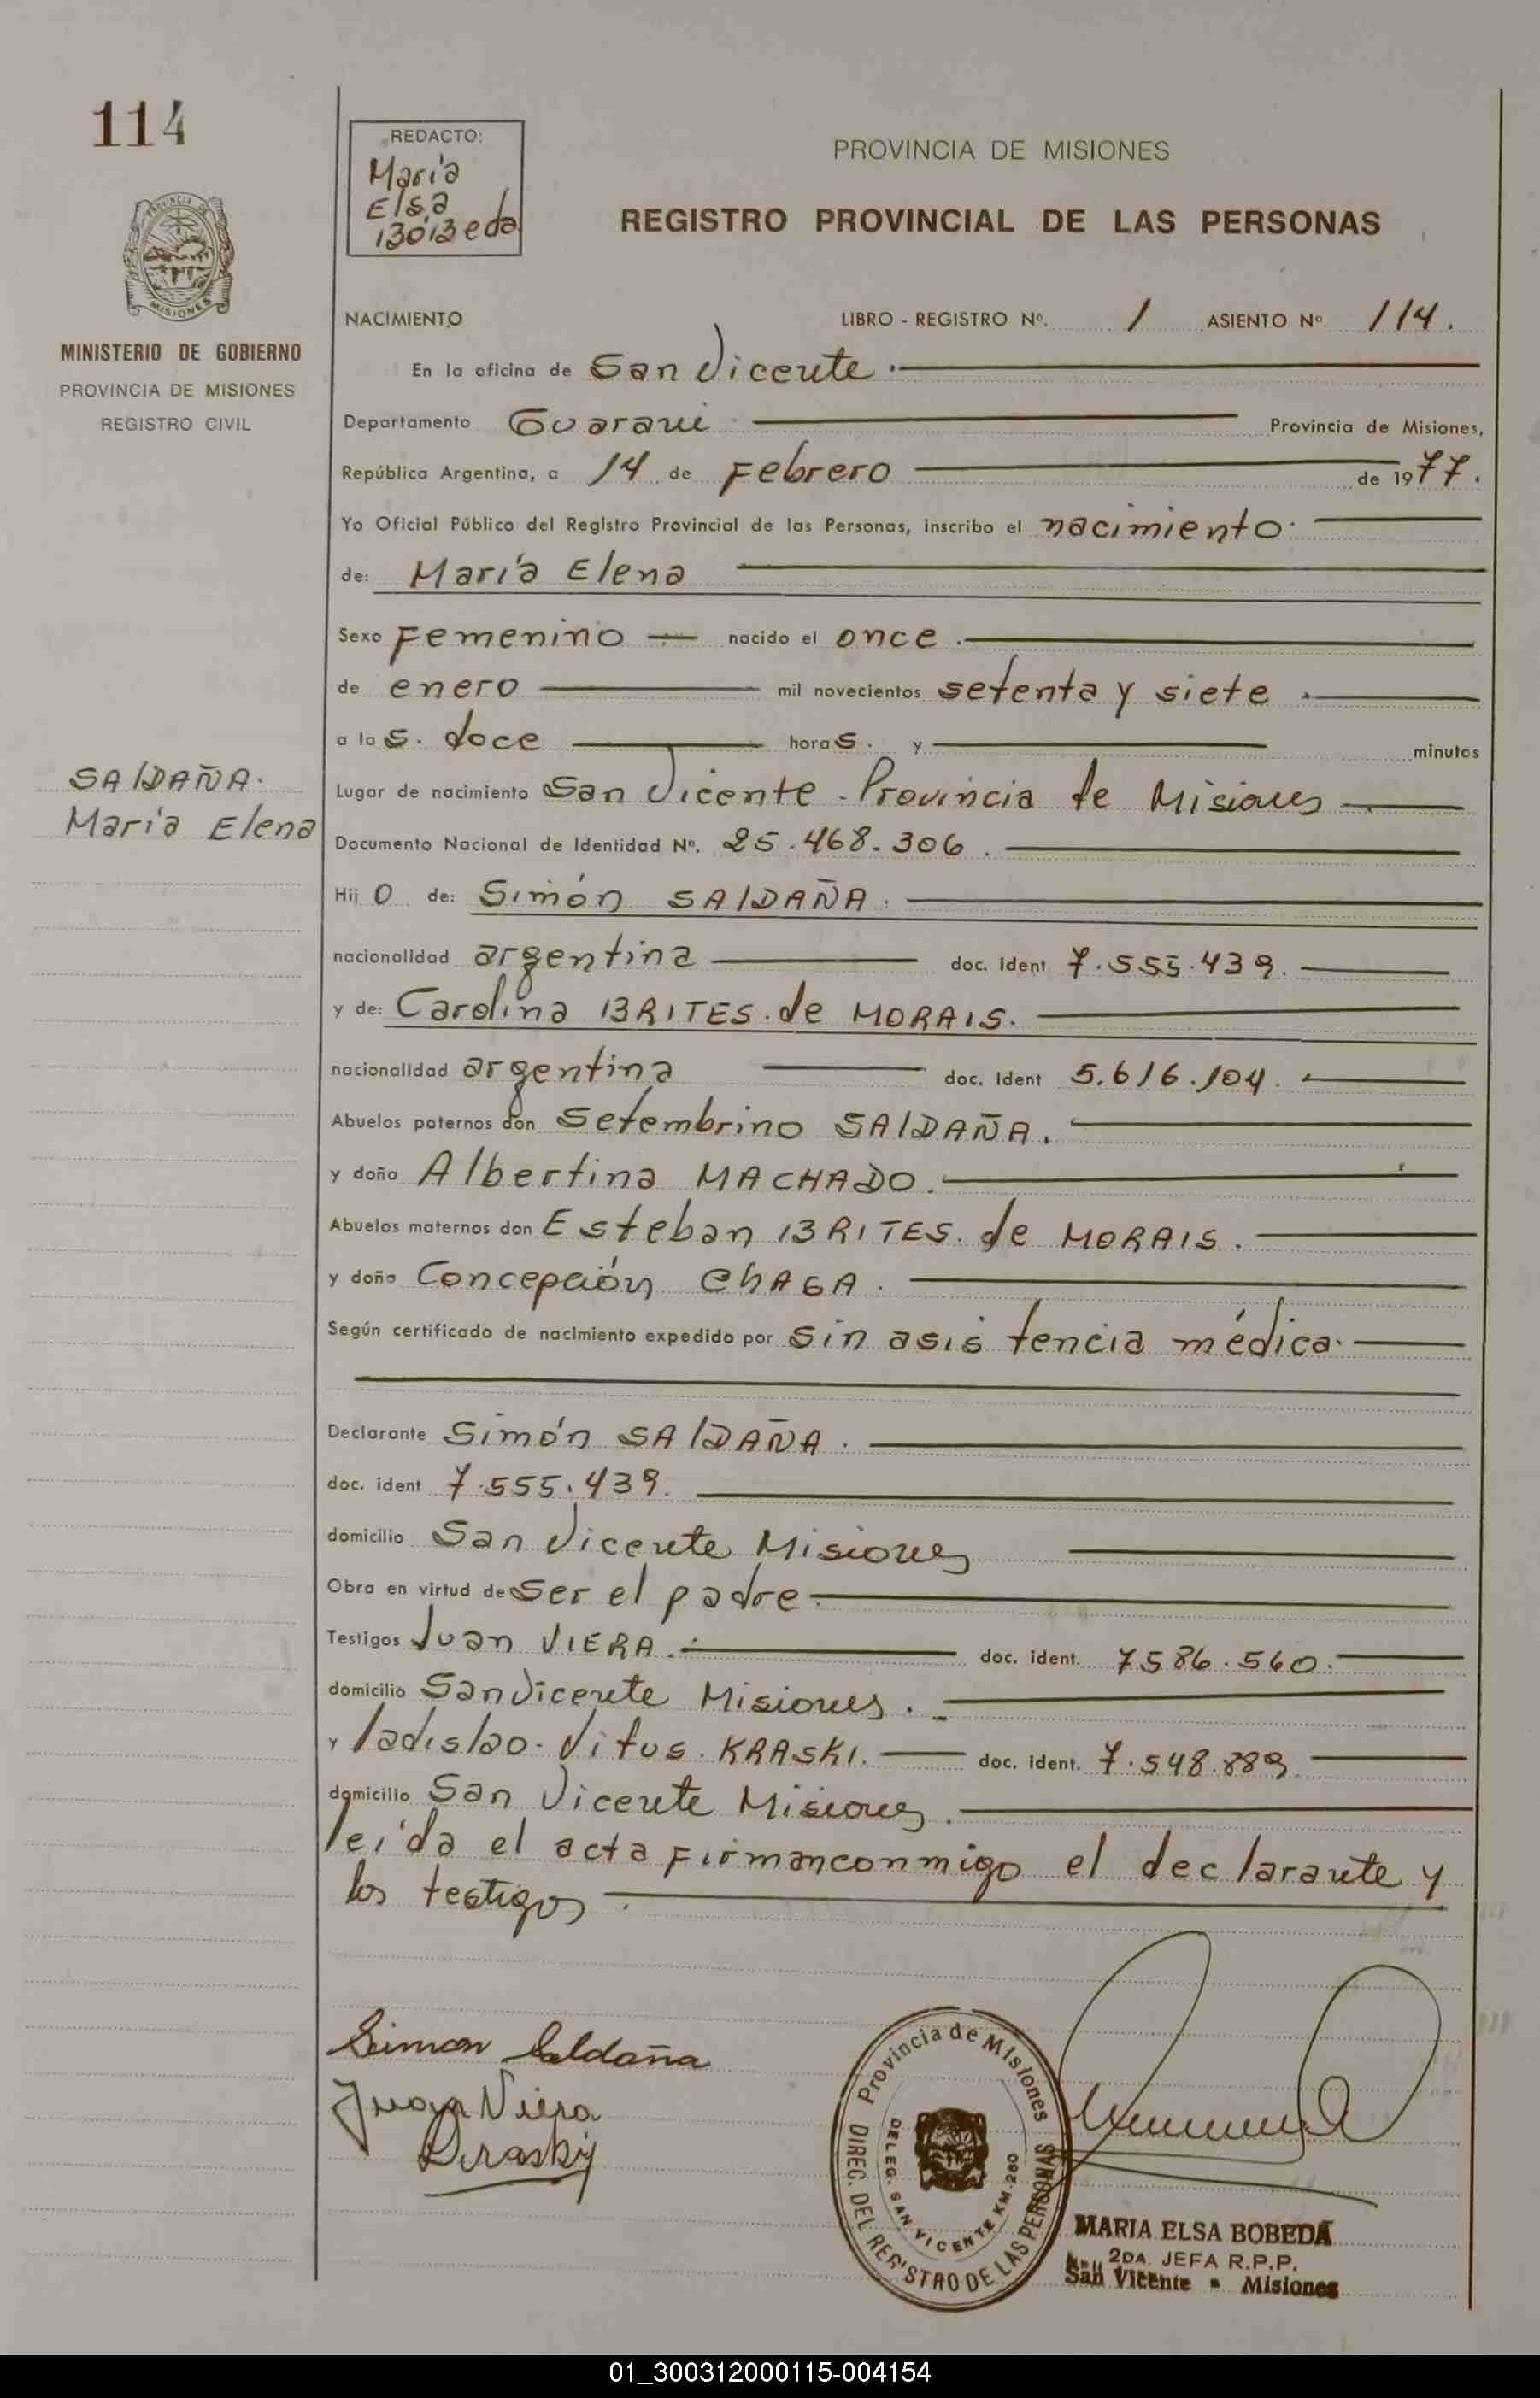 114
REDACTO:
María
Elsa
Bobeda
PROVINCIA DE MISIONES
REGISTRO PROVINCIAL DE LAS PERSONAS
PROVINCIA DE
MISIONES
MINISTERIO DE GOBIERNO
PROVINCIA DE MISIONES
REGISTRO CIVIL
NACIMIENTO LIBRO - REGISTRO Nº. 1 ASIENTO Nº 114.
En la oficina de San Vicente.
Departamento Guarani Provincia de Misiones,
República Argentina, a 14 de Febrero de 1977.
Yo Oficial Público del Registro Provincial de las Personas, inscribo el nacimiento.
de: María Elena
Sexo Femenino nacido el once.
de enero mil novecientos setenta y siete.
a las. doce horas. y minutos
SALDAÑA.
María Elena
Lugar de nacimiento San Vicente - Provincia de Misiones
Documento Nacional de Identidad Nº. 25.468.306.
Hijo de: Simón SALDAÑA.
nacionalidad argentina doc. ident 7.555.439.
y de: Carolina BRITES. de MORAIS.
nacionalidad argentina doc. Ident 5.616.104.
Abuelos paternos don Setembrino SALDAÑA.
y doña Albertina MACHADO.
Abuelos maternos don Esteban BRITES. de MORAIS.
y doña Concepción ChAGA.
Según certificado de nacimiento expedido por sin asistencia médica.
Declarante Simón SALDAÑA.
doc. ident 7.555.439.
domicilio San Vicente Misiones
Obra en virtud de ser el padre.
Testigos Juan VIERA. doc. ident. 7586.560.
domicilio San Vicente Misiones.
y ladislao. Vitus. KRASKI. doc. ident. 7.548.889.
domicilio San Vicente Misiones.
leída el acta firman conmigo el declarante y
los testigos.
Simon Saldaña
Juan Viera
Provincia de Misiones
DIREC. DEL REGISTRO DE LAS PERSONAS
DELEG. SAN VICENTE KM. 260
MARIA ELSA BOBEDA
2DA. JEFA R.P.P.
San Vicente - Misiones
01_300312000115-004154